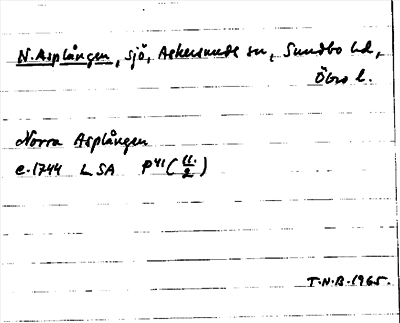 N. Asplången, sjö, Askersunds sn, Sundbo hd,
Öbro l.
Norra Asplången
e. 1744 LSA P41 (11/2)
T.N.B. 1965.